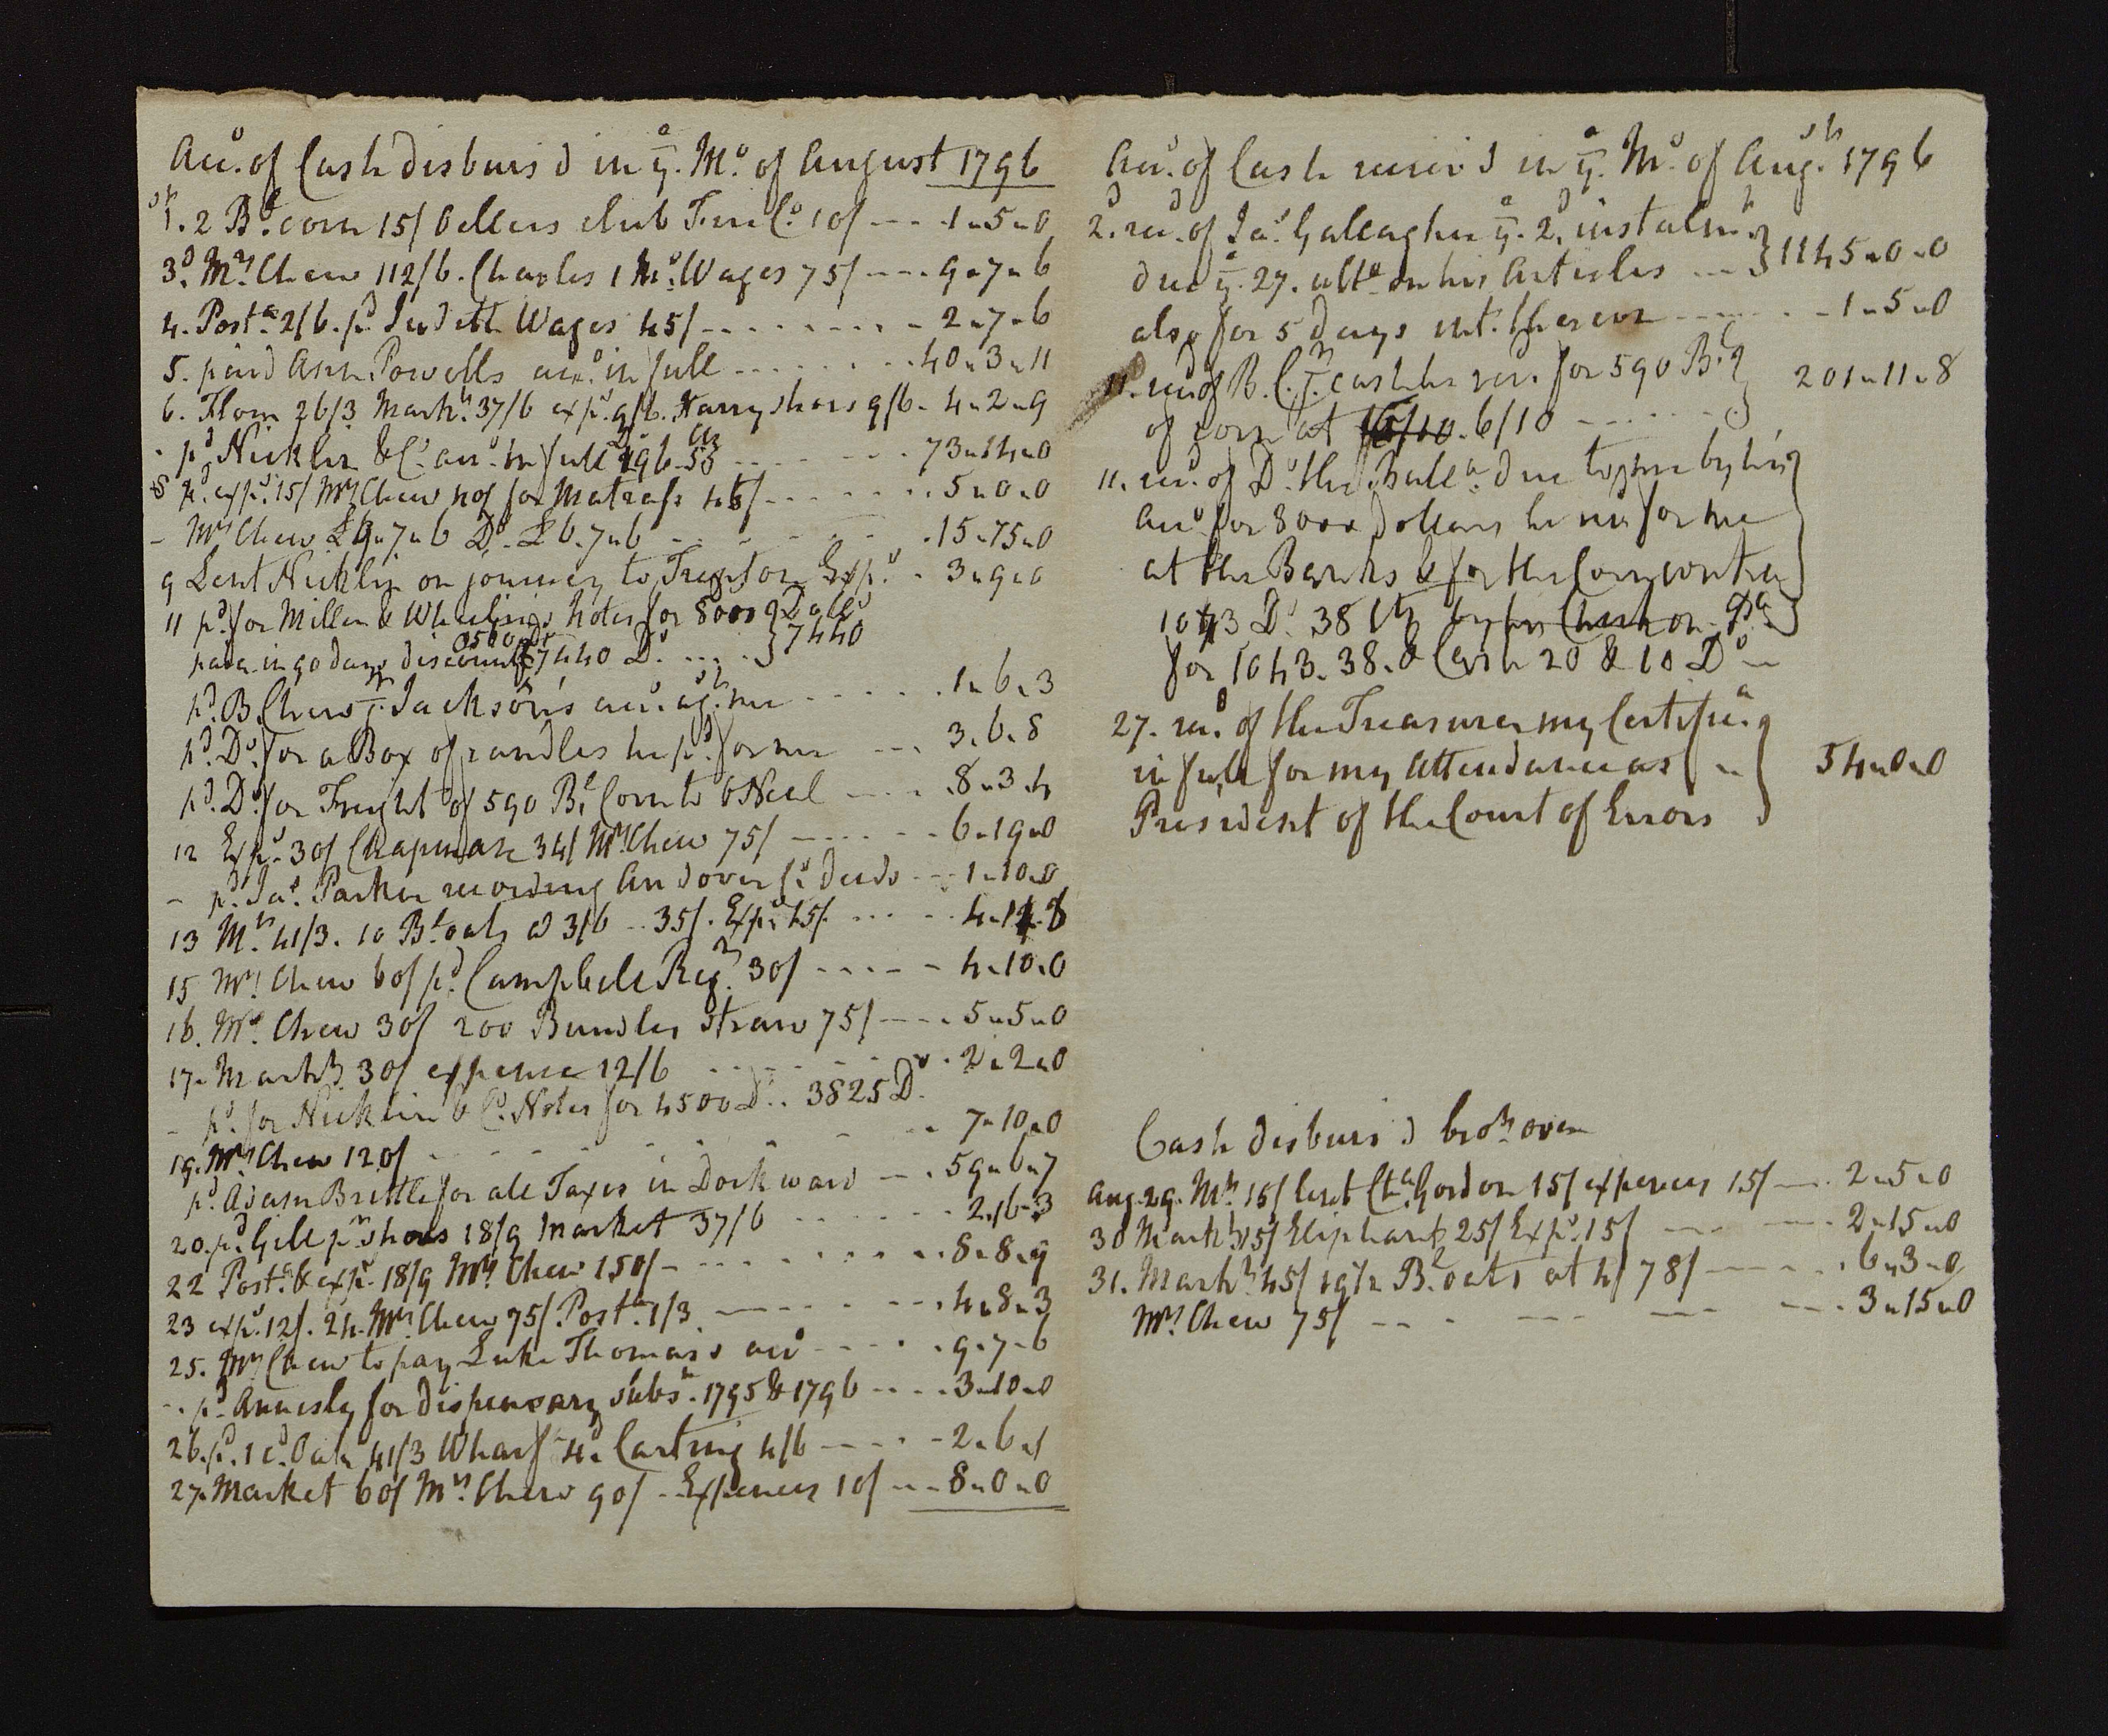 Acc.o of Cash disburs'd in y.e M.o of August 1796
1.st 2 B.ls corn 15/ Oellers club Fire C.o 10/ --- 1"5"0
3.d M.rs Chew 112/6. Charles 1 M.os Wages 75/ --- 9"7"6
4. Post.a 2/6. p.d Judeth Wages 45/ --- 2"7"6
5. paid Ann Powells acc.o in full --- 40"3"11
6. Flour 26/3 Mark.t 37/6 exp.s 9/6. Harry shoes 9/6 - 4"2"9
- p.d Nicklin & C.o acc.o in full 196-53 --- 73"14"0
8 p.d exp.s 15/ M.rs Chew 40/ for Matrass 45/ --- 5"0"0
- M.rs Chew £9"7"6 D.o £6"7"6 --- 15"15"0
9 Lent Nicklin on journey to Trenton Exp.s - 3"9"0
11 p.d for Miller & Wheelings Notes for 8000 Doll.s
paya. in 90 days discount 7440 D.s --- } 7440
p.d B. Chew J.r Jackson's acc.o ag.st me --- 1"6"3
p.d D.o for a Box of candles he p.d for me --- 3"6"8
p.d D.o for Freight of 590 B.ls Corn to ONeal --- 8"3"4
12 Exp.s 30/ Chapman 34/ M.rs Chew 75/ --- 6"19"0
- p.d Ja.s Parker recording Andover C.o deeds --- 1"10"0
13 M.kt 41/3. 10 B.ls oats @ 3/6 .. 35/. Exp.s 15/. --- 4"11"8
15 M.rs Chew 60/ p.d Campbell Reg.r 30/ --- 4"10"0
16. M.rs Chew 30/ 200 Bundles straw 75/ --- 5"5"0
17. Mark.t 30/ expence 12/6 --- 2"2"0
- p.d for Nicklin & C.o Notes for 4500 D.s .. 3825 D.s
19. M.rs Chew 120/ --- 7"10"0
p.d Adam Brittle for all Taxes in Dock ward --- 59"6"7
20. p.d Gill p.r shoes 18/9 Market 37/6 --- 2"16"3
22 Post.a & exp.s 18/9 M.rs Chew 150/ --- 8"8"9
23 exp.s 12/. 24. M.rs Chew 75/. Post.a 1/3 --- 4"8"3
25. M.rs Chew to pay Luke Thomas's acc.o --- 9"7"6
-. p.d Annesly for dispensary subs.n 1795 & 1796 --- 3"10"0
26. p.d 1 c.d Oak 41/3 Wharf 4.d Carting 4/6 --- 2"6"1
27. Market 60/ M.rs Chew 90/ - Expences 10/ --- 8"0"0
Acc.o of Cash receiv'd in y.e M.o of Aug.st 1796
2.d rec.d of Ja.s Gallagher y.e 2.d instalm.t
due y.e 27. ult.o on his Articles --- } 1145"0"0
also for 5 days int. thereon --- 1"5"0
11. rec.d of B. C. J.r cash he rec.d for 590 B.ls
of corn at 6/10 --- } 201"11"8
11. rec.d of D.o the Ball.a due to me by his
acc.o for 8000 Dollars he rec.d for me
at the Banks & for the Corn contra
1043 D.s 38 Cts by his Check on
for 1043.38. & Cash 20 & 10 D.s
27. rec.d of the Treasurer my Certific.a
in full for my Attendance as
President of the Court of Errors } 54"0"0
Cash disburs'd bro.t over
Aug. 29. M.kt 15/ lent Gordon 15/ expences 15/ --- 2"5"0
30 Mark.t 15/ Eliphant 25/ Exp.s 15/ --- 2"15"0
31. Mark.t 45/ 19 1/2 B.ls oats at 4/ 78/ --- 6"3"0
M.rs Chew 75/ --- 3"15"0